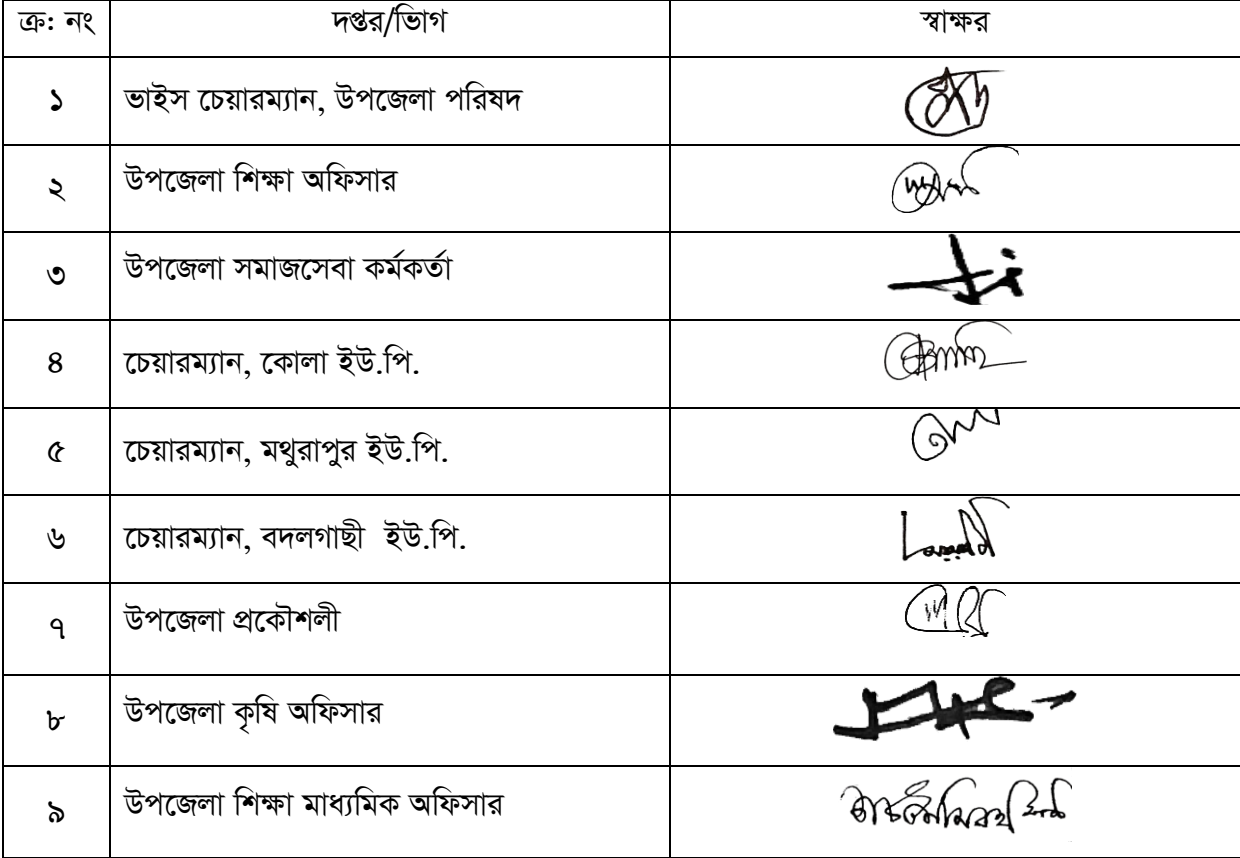 ক্র: নং দপ্তর/ভিাগ স্বাক্ষর
১ ভাইস চেয়ারম্যান, উপজেলা পরিষদ
২ উপজেলা শিক্ষা অফিসার
৩ উপজেলা সমাজসেবা কর্মকর্তা
৪ চেয়ারম্যান, কোলা ইউ.পি.
৫ চেয়ারম্যান, মথুরাপুর ইউ.পি.
৬ চেয়ারম্যান, বদলগাছী ইউ.পি.
৭ উপজেলা প্রকৌশলী
৮ উপজেলা কৃষি অফিসার
৯ উপজেলা শিক্ষা মাধ্যমিক অফিসার